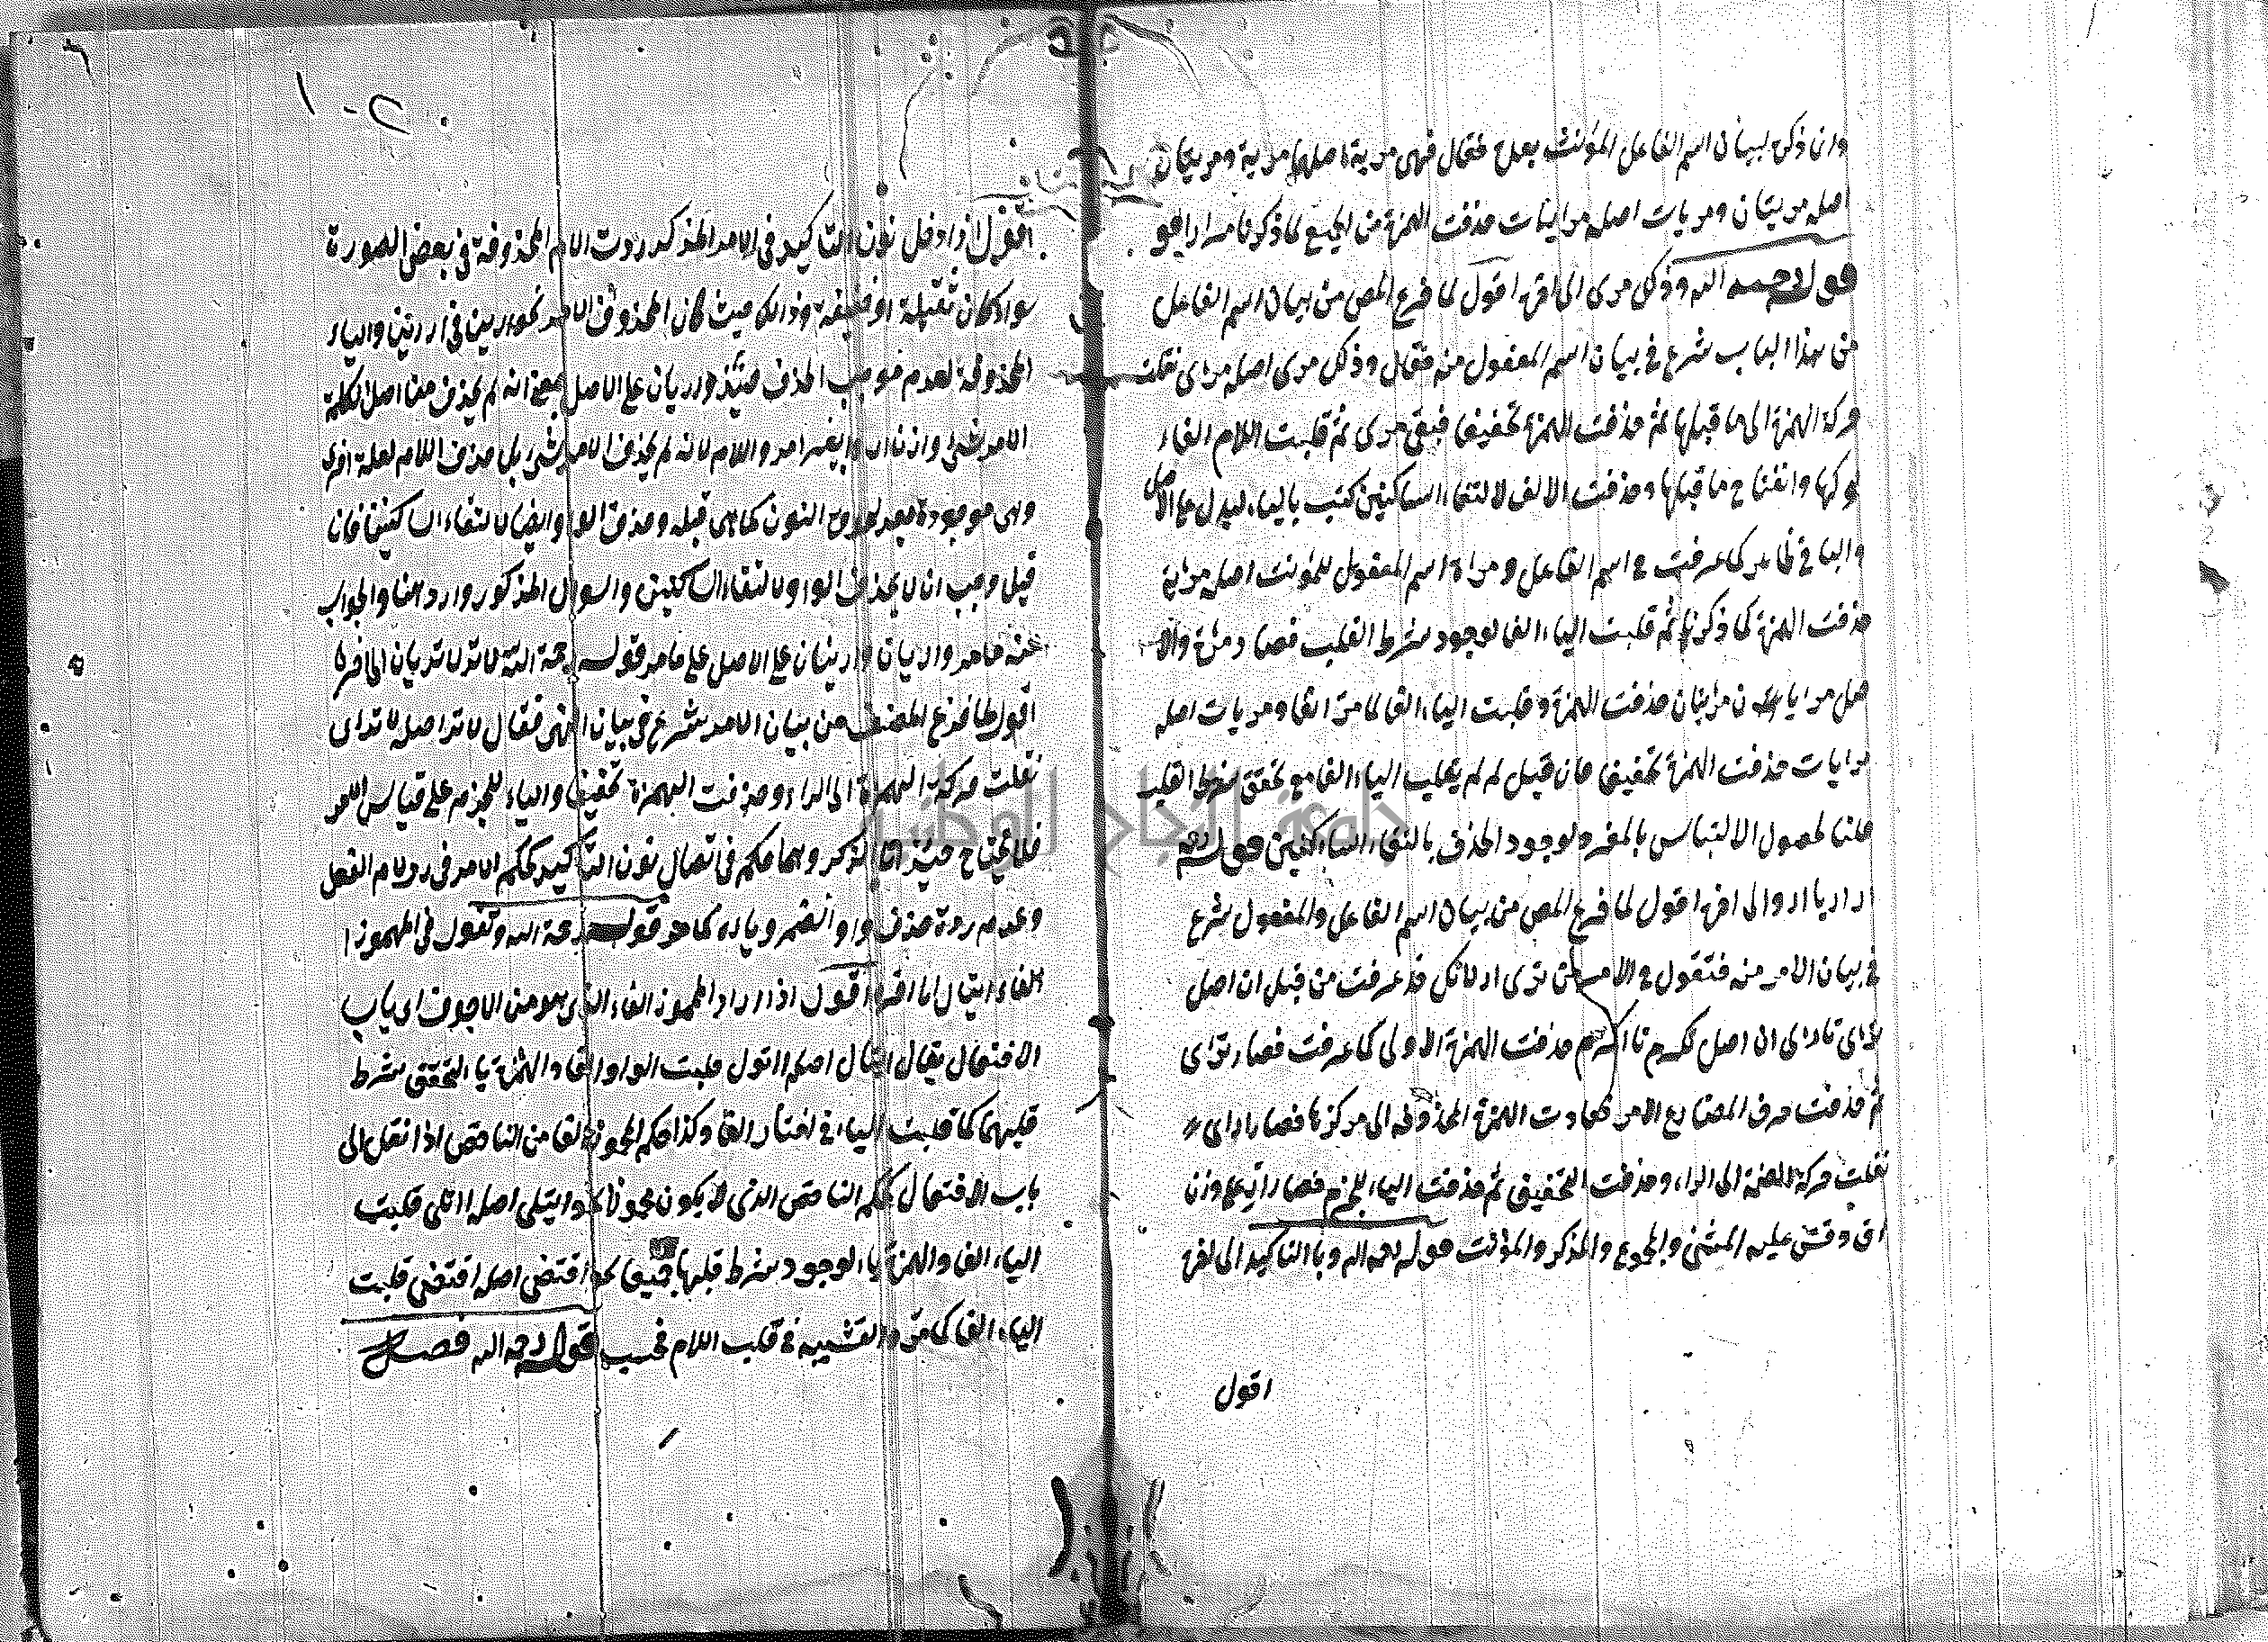 وان ذكر لبيان اسم الفاعل المؤنث بعده فقال فهي مرية اصلها مرئية ومريتان
اصله مرئيتان ومريات اصله مرائيات حذفت الهمزة من الجميع لما ذكرنا مرارا هو
قوله رحمه الله وذكل مرى الى اخره اقول لما فرغ المص من بيان اسم الفاعل
من هذا الباب شرع في بيان اسم المفعول منه فقال وذكل مرى اصله مراى نقلت
حركة الهمزة الى ما قبلها ثم حذفت الهمزة تخفيفا فبقى مرى ثم قلبت اللام الفاء
لحركها وانفتاح ما قبلها وحذفت الالف لالتقاء الساكنين كتب بالياء ليدل على الاصل
والباقي ظاهر كما عرفت في اسم الفاعل ومراة اسم المفعول للمؤنث اصله مرئية
حذفت الهمزة كما ذكرنا ثم قلبت الياء الفا لوجود شرط القلب فصار مرة والا
صل مرايان حذفت الهمزة وقلبت الياء الفا لما مر القا ومريات اصله
مرايات حذفت الهمزة تخفيفا فان قيل لم لم يقلب الياء الفا مع تحقق شرط القلب
قلنا لحصول الالتباس بالمفرد لوجود الحذف بالتقاء الساكنين قوله رحمه
ار اريا اروا الى اخره اقول لما فرغ المص من بيان اسم الفاعل والمفعول شرع
في بيان الامر منه فتقول في الامر من ترى ار لانك قد عرفت من قبل ان اصل
ترى تاراى ان اصل تكرم تاكرم حذفت الهمزة الاولى كما عرفت فصار تراى
ثم حذفت حرف المضارع الامر فعادت الهمزة المحذوفة الى مركزها فصار اراى
نقلت حركة الهمزة الى الراء وحذفت التخفيف ثم حذفت الياء للجزم فصار ار على وزن
اف وقس عليه المثنى والجموع والمذكر والمؤنث قوله رحمه الله وبالتاكيد الى اخره
اقول
اقول اذا دخل نون التاكيد في الامر المذكر ردت اللام المحذوفة في بعض الصورة
سواء كان ثقيلة او خفيفة وذالك حيث كان المحذوف الامر نحو ارين في ار رتين والياء
المحذوفة لعدم موجب الحذف حينئذ وارريان على الاصل بمعنى انه لم يحذف من اصل الكلمة
الامر شئ وارنان ايضا امر واللام لانه لم يحذف الامر شئ بل حذف اللام لعلة اخرى
وهى موجودة بعد لحوق النون كما هى قبله وحذف الواو ايضا لالتقاء الساكنين فان
قيل وجب ان لا يحذف الواو لالتقاء الساكنين والسوال المذكور وارد هنا والجواب
عنه ما مر واريان وارينان على الاصل على ما مر قوله رحمة الله لا تر لا تريان الى اخره
اقول لما فرغ المصنف من بيان الامر شرع في بيان النهى فقال لا تر اصله لا تراى
نقلت حركة الهمزة الى الراء وحذفت الهمزة تخفيفا والياء للجزم على قياس الامر
فلا يحتاج حينئذ الى الذكر وهما حكم في اتصال نون التاكيد كحكم الامر في رد لام الفعل
وعدم رده حذف واو الضمير ويائه كما هو قوله رحمة الله وتقول في المهموز ا
لفاء ايتال الى اخره اقول اذا ار اد المهموز الفاء الذى هو من الاجوف اى ياب
الافتعال يقال ايتال اصله ااتول قلبت الواو الفا والهمزة ياء لتحقق شرط
قلبهما كما قلبت الياء في اختار الفا وكذا حكم المهموز الفا من الناقص اذا نقل الى
باب الافتعال كحكم الناقص الذى لا يكون مهموزا نحو ايتلى اصله ااتلى قلبت
الياء الفا والهمزة ياء لوجود شرط قلبها جميعا نحو اقتضى اصله اقتضى قلبت
الياء الفا كما مر والتشبيه في قلب اللام فحسب قوله رحمه الله فصل